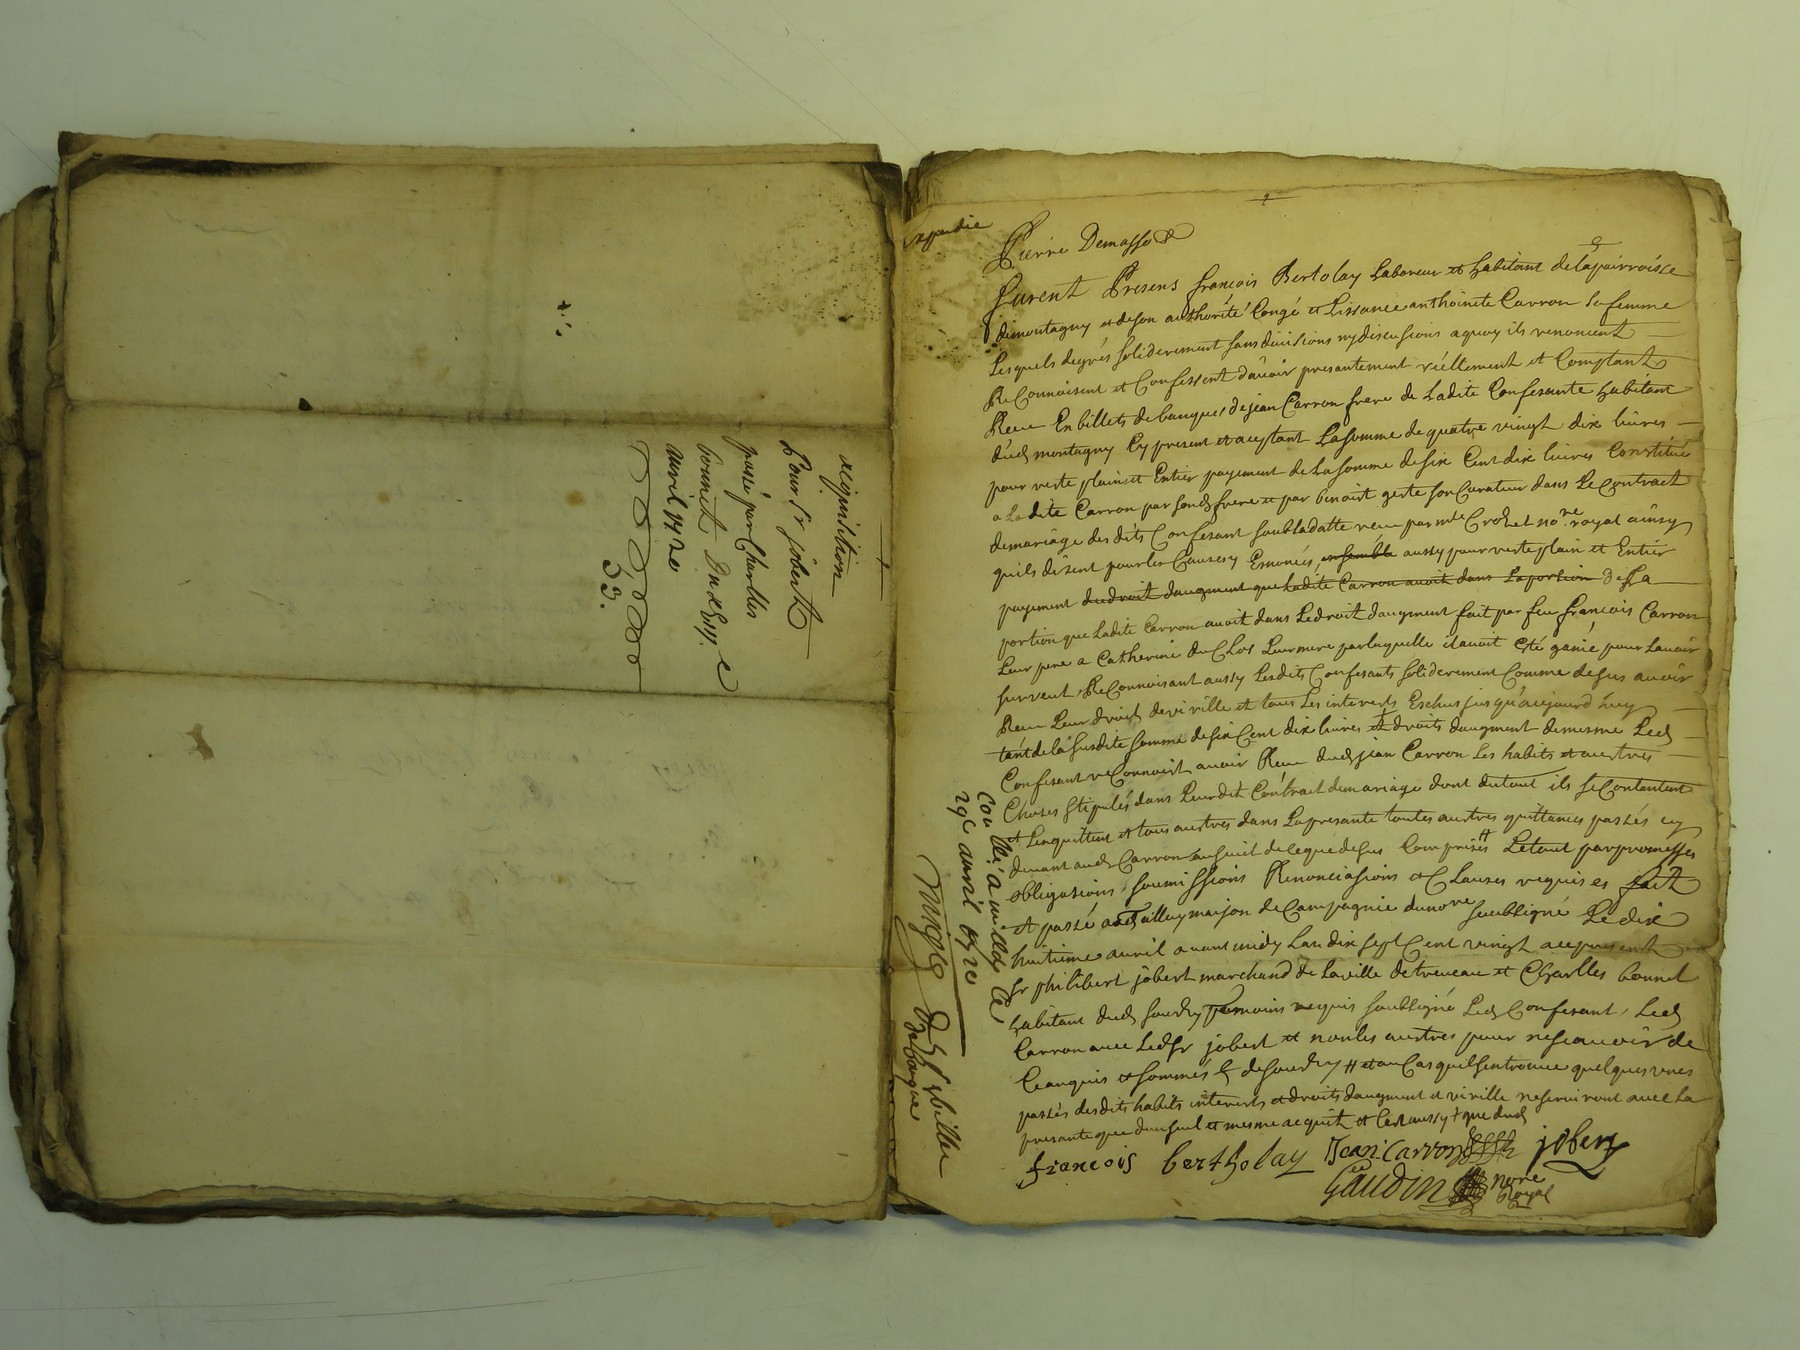 acquisition
Pour Sr jobert
pasé par Charles
bonnet Du 18me
avril 1720
33.
expediè
Pierre Demasso
furent Presens françois Bertolay Laboreur et habitant delaparroisse
demontagny et deson authorité Congé et Lissance anthoinete Carron sa femme
Lesquels degrés soliderement sans divisions ny discusions aquoy ils renoncent
ReConnoisent et Confessent d'avoir presantement réellement et Comptant
Receu En billets de banque, de jean Carron frere de Ladite Confesante habitant
dud montagny Cy present et aceptant La somme de quatre vingt dix livres
pour reste plain et Entier payement de La somme de six Cent dix livres Constitué
a Ladite Carron par sond frere et par benoist geste son Curateur dans Le Contract
demariage des dits Confesant soubs La datte receu par mte Crozet nore royal ainsy
quils disent pour les Causes y Enoncés, ensemble aussy pour reste plain et Entier
payement du droit daugment que Ladite Carron avoit dans La portion de La
portion que Ladite Carron avoit dans Le droit daugment fait par feu françois Carron
Leur pere a Catherine du Clos Leur mere par laquelle il avoit esté ganié pour L'avoir
survecut, ReConnoisant aussy Lesdits Confesants soliderement Comme desus avoir
Receu Leur droit de viville et tous Les interets Eschus jusqu'aujourd'huy
tant de la susdite somme de six Cent dix livres et droits daugment demesme Led
Confesant reConnoit avoir Receu dud jean Carron Les habits et autres
Choses stipulés dans Leurdit Contract demariage dont dutout ils se Contentent
et L'enquittent et tous autres dans La presante toutes autres quittances passés cy
devant aud Carron au sujet de ce que desus Comprises # Le tout par promesses
obligasions, soumissions Renonciasions et Clauses requises fait
et passé au Taillay maison de Campagnie du nore soubsigné Le dix
huitieme avril avant midy L'an dix sept Cent vingt en presence
Sr philibert jobert marchand de La ville de treveau et Charles bonnet
habitant dud Sourdy temoins requis soubsigné Led Confesant, Led
Carron avec Led Sr jobert et non les autres pour ne scavoir de
Ce anquis et sommés de sourdy # et au Cas quil sen trouve quelques unes
passés desdits habits interets et droits daugment et viville ne serviront avec La
presante que d'un seul et mesme acquit et Ce aussy + que dud
françois berthołay Jean Carron jobert
Gaudin nore
Royal
Conllé a milly le
29e avril 1720